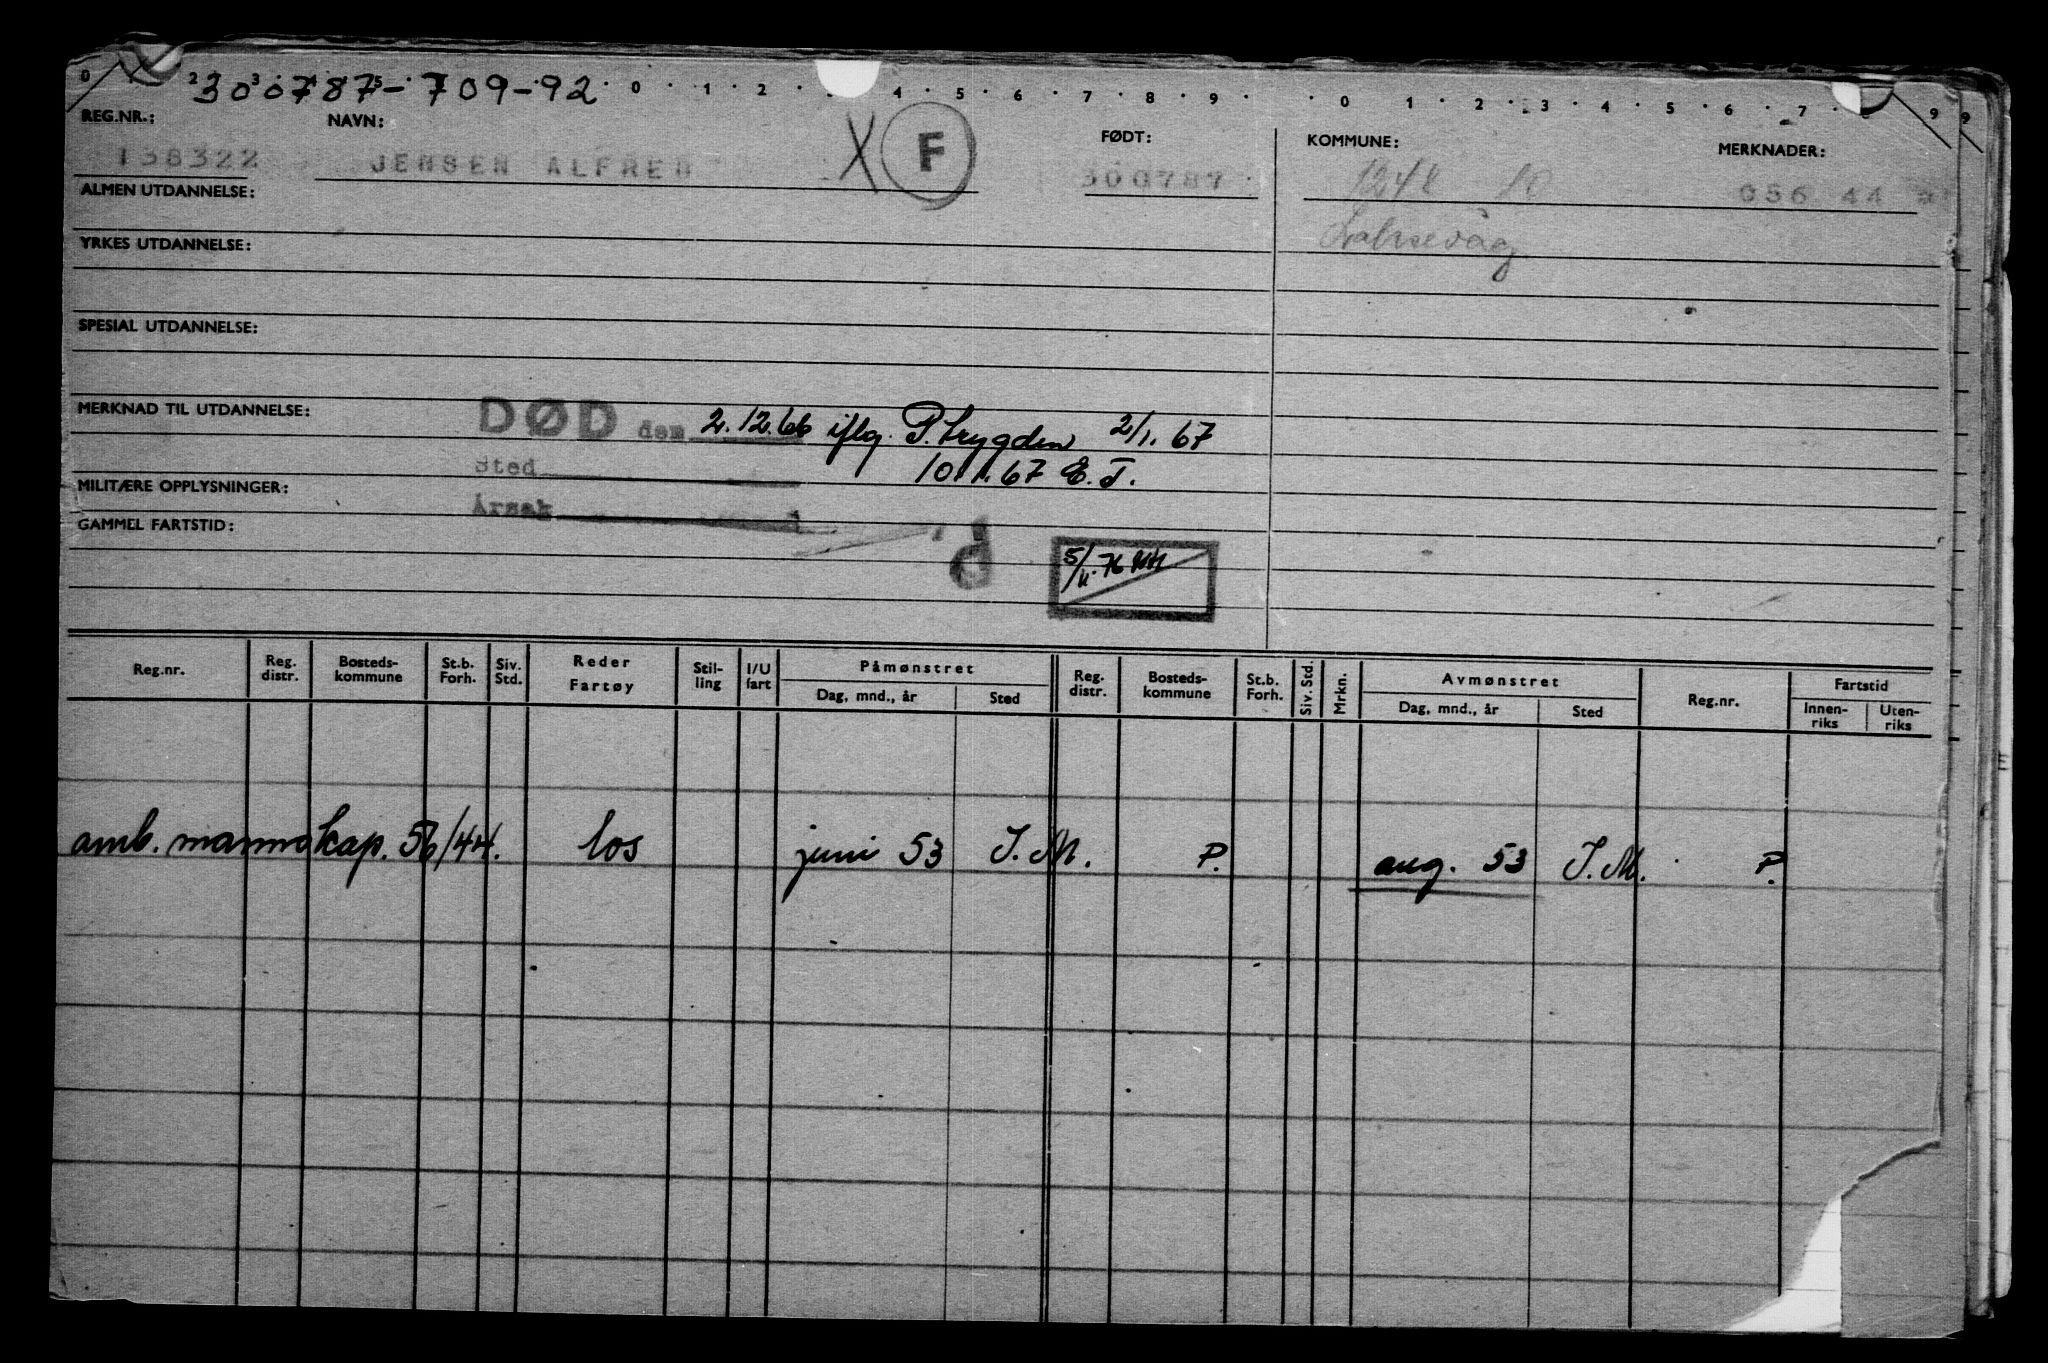 300787-709-92
0 2 3 5 0 1 2 4 5 6 7 8 9 0 1 2 3 4 5 6 7 9 9
REG.NR.: NAVN: FØDT: KOMMUNE: MERKNADER:
138322 JENSEN ALFRED X F 300787 1248 10 056 44 *
ALMEN UTDANNELSE:
Laksevåg
YRKES UTDANNELSE:
SPESIAL UTDANNELSE:
MERKNAD TIL UTDANNELSE:
DØD den 2.12.66 iflg. P.trygden 2/1.67
Sted 10.1.67 E.T.
MILITÆRE OPPLYSNINGER:
Årsak
GAMMEL FARTSTID:
5/11.76
Reg.nr. Reg. distr. Bosteds-kommune St.b. Forh. Siv. Std. Reder Fartøy Stil-ling I/U fart Påmønstret Dag, mnd., år Sted Reg. distr. Bosteds-kommune St.b. Forh. Siv. Std. Mrkn. Avmønstret Dag, mnd., år Sted Reg.nr. Fartstid Innen-riks Uten-riks
amb. mannskap. 56/44. los juni 53 I.M. P. aug. 53 I.M. P.